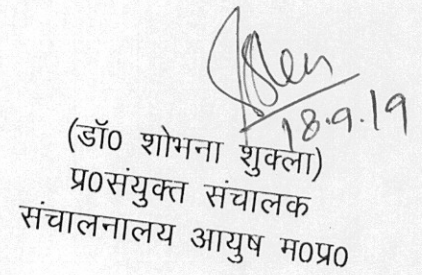 18.9.19
(डॉ0 शोभना शुक्ला)
प्र0संयुक्त संचालक
संचालनालय आयुष म0प्र0